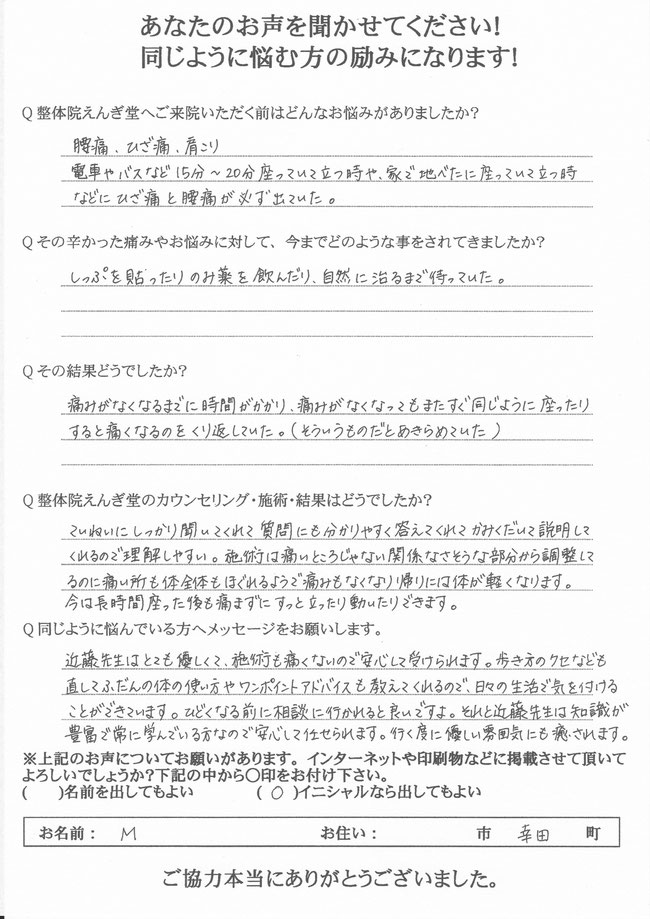 あなたのお声を聞かせてください!
同じように悩む方の励みになります!
Q 整体院えんぎ堂へご来院いただく前はどんなお悩みがありましたか?
腰痛、ひざ痛、肩こり
電車やバスなど15分～20分座っていて立つ時や、家で地べたに座っていて立つ時
などにひざ痛と腰痛が必ず出ていた。
Q その辛かった痛みやお悩みに対して、今までどのような事をされてきましたか?
しっぷを貼ったりのみ薬を飲んだり、自然に治るまで待っていた。
Q その結果どうでしたか?
痛みがなくなるまでに時間がかかり、痛みがなくなってもまたすぐ同じように座ったり
すると痛くなるのをくり返していた。(そういうものだとあきらめていた)
Q 整体院えんぎ堂のカウンセリング・施術・結果はどうでしたか?
ていねいにしっかり聞いてくれて質問にも分かりやすく答えてくれてかみくだいて説明して
くれるので理解しやすい。施術は痛いところじゃない関係なさそうな部分から調整して
るのに痛い所も体全体もほぐれるようで痛みもなくなり帰りには体が軽くなります。
今は長時間座った後も痛まずにすっと立ったり動いたりできます。
Q 同じように悩んでいる方へメッセージをお願いします。
近藤先生はとても優しくて、施術も痛くないので安心して受けられます。歩き方のクセなども
直してふだんの体の使い方やワンポイントアドバイスも教えてくれるので、日々の生活で気を付ける
ことができています。ひどくなる前に相談に行かれると良いですよ。それと近藤先生は知識が
豊富で常に学んでいる方なので安心して任せられます。行く度に優しい雰囲気にも癒されます。
※上記のお声についてお願いがあります。インターネットや印刷物などに掲載させて頂いて
よろしいでしょうか?下記の中から〇印をお付け下さい。
( )名前を出してもよい (○)イニシャルなら出してもよい
お名前： M お住い： 市 幸田 町
ご協力本当にありがとうございました。